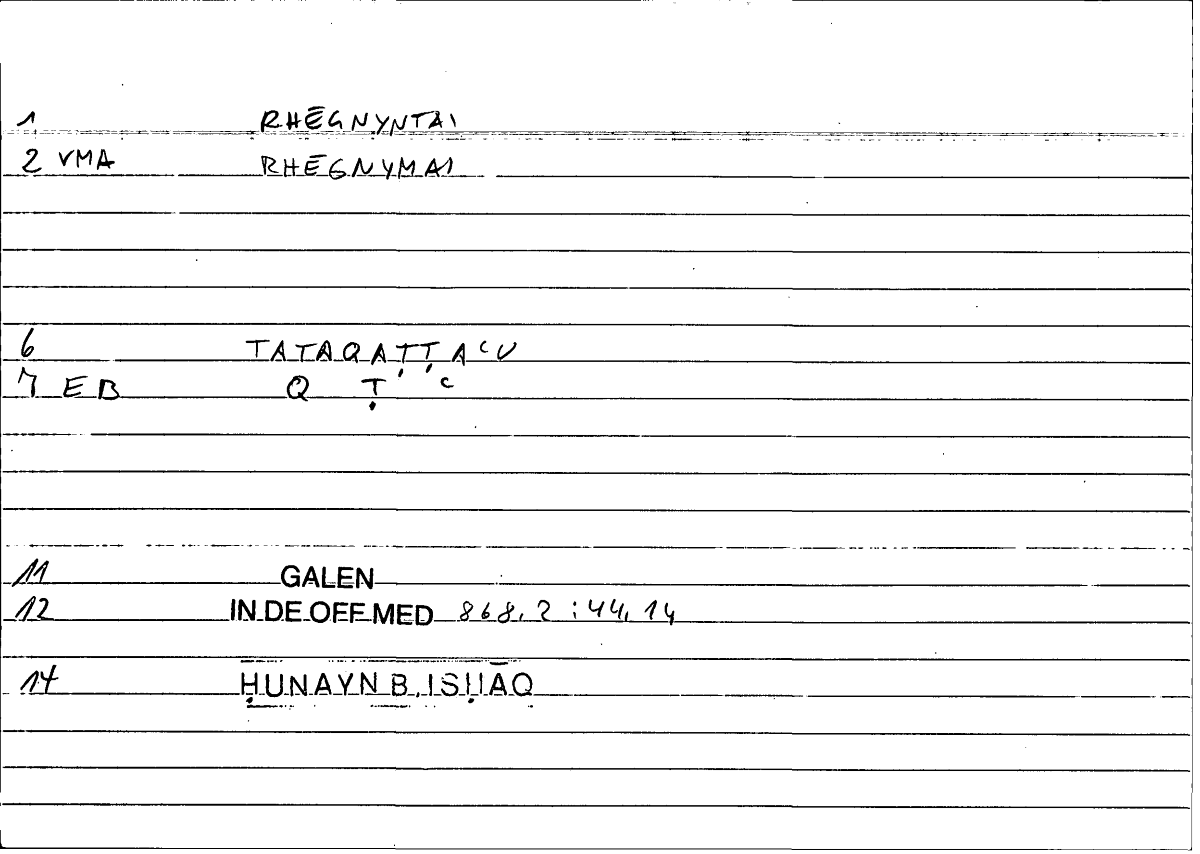 1 RHĒGNYNTAI
2 VMA RHĒGNYMAI
6 TATAQAṬṬAʿU
7 EB Q Ṭ ʿ
11 GALEN
12 IN DE OFF MED 868,2 : 44,14
14 ḤUNAYN B. ISḤĀQ